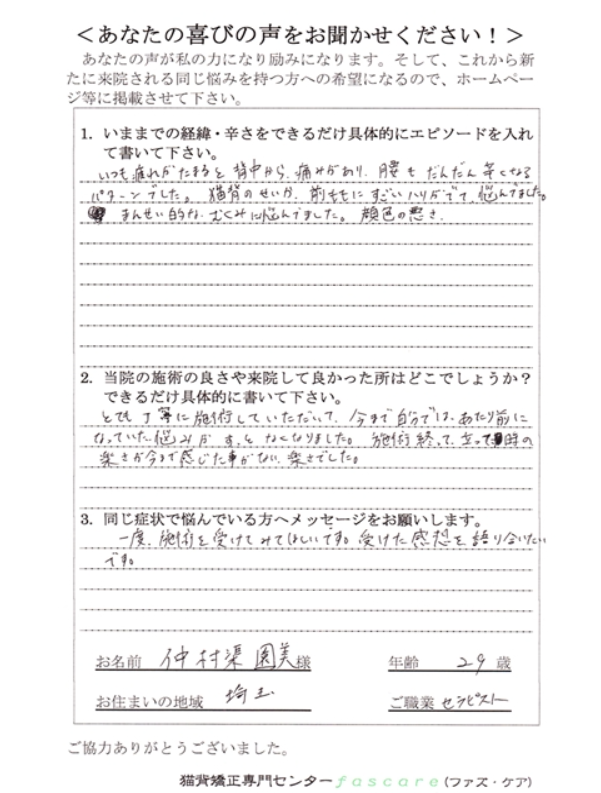 ＜あなたの喜びの声をお聞かせください！＞
あなたの声が私の力になり励みになります。そして、これから新
たに来院される同じ悩みを持つ方への希望になるので、ホームペー
ジ等に掲載させて下さい。
1. いままでの経緯・辛さをできるだけ具体的にエピソードを入れ
て書いて下さい。
いつも疲れがたまると 背中から、痛みがあり、腰も だんだん 辛くなる
パターンでした。 猫背のせいか、前ももに すごいハリがでて、悩んでました。
まんせい的な むくみに悩んでました。 顔色の悪さ、
2. 当院の施術の良さや来院して良かった所はどこでしょうか？
できるだけ具体的に書いて下さい。
とても丁寧に施術していただいて、今まで自分では、あたり前に
なっていた悩みが すっと なくなりました。 施術終って、立って時の
楽さが今まで感じた事がない、楽さでした。
3. 同じ症状で悩んでいる方へメッセージをお願いします。
一度、施術を受けてみてほしいです。受けた感想を語り合いたい
です。
お名前 仲村渠 園美様 年齢 29 歳
お住まいの地域 埼玉 ご職業 セラピスト
ご協力ありがとうございました。
猫背矯正専門センターfascare（ファス・ケア）